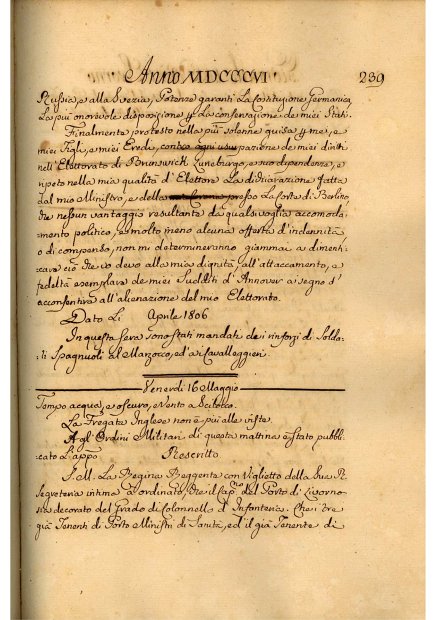 Anno MDCCCVI 239
Russia, e alla Svezia, Potenze garanti la Costituzione Germanica
la più onorevole disposizione per la conservazione de miei Stati.
Finalmente protesto nella più solenne guisa per me, e
miei Figli, e miei Eredi, contro ogni usurpazione de miei diritti
nell'Elettorato di Brunswick Luneburgo, e sue dipendenze, e
ripeto nella mia qualità d'Elettore la dichiarazione fatta
dal mio Ministro, e della presso la Corte di Berlino,
che nessun vantaggio resultante da qualsivoglia accomoda,
mento politico, e molto meno alcuna offerta d'indennità
o di compenso, non mi determineranno giammai a dimenti,
care ciò che io devo alla mia dignità, all'attaccamento, e
fedeltà esemplare de miei Sudditi d'Annover a segno d'
acconsentire all'alienazione del mio Elettorato.
Dato Li Aprile 1806
In questa sera sono stati mandati dei rinforzi di Solda,
ti Spagnuoli al Marzocco, ed a Cavalleggieri.
Venerdì 16 Maggio
Tempo acqua, e oscuro, e Vento a Scilocco.
La Fregata Inglese non è più alle viste.
Agl'Ordini Militari di questa mattina è stato pubbli,
cato L'app.o Rescritto.
S. M. La Regina Reggente con Viglietto della Sua R.
Segreteria intima à ordinato, che il Cap.no del Porto di Livorno
sia decorato del Grado di Colonnello d'Infanteria. Che i tre
già Tenenti di Porto Ministri di Sanità, ed il già Tenente di